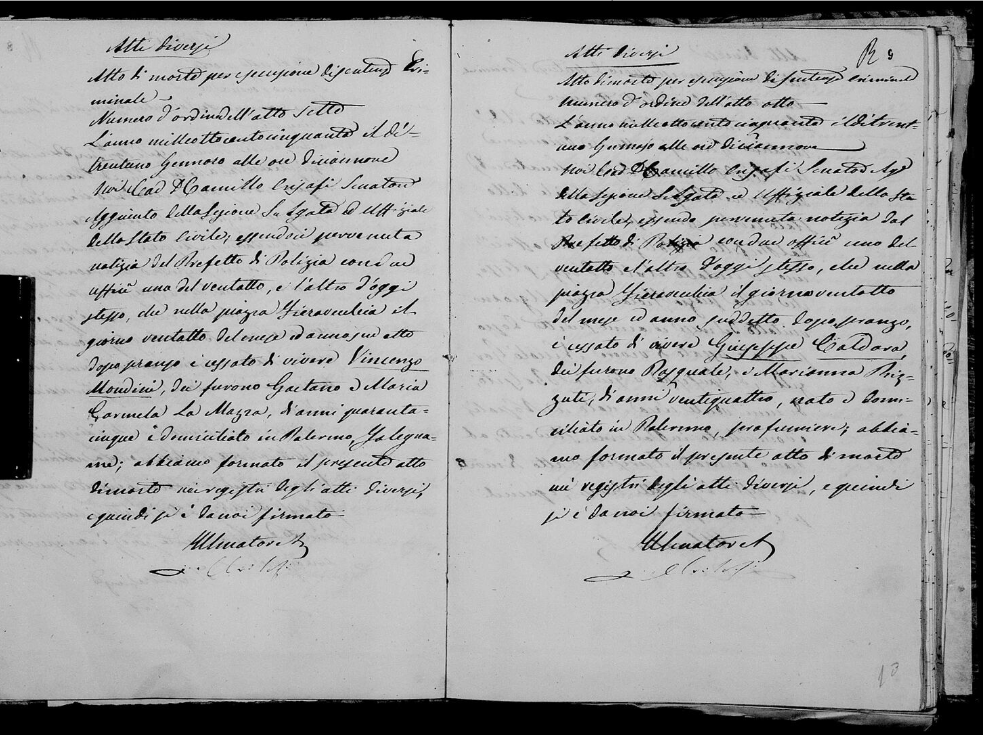 Atti diversi
Atto di morte per esecuzione di sentenza Cri-
minale
Numero d'ordine dell'atto Sette
L'anno milleottocentocinquanta il dì
trentuno Gennaro alle ore diciannove
Noi Cav D Camillo Senatore
Aggiunto della Sezione ed Uffiziale
dello Stato Civile, essendoci pervenuta
notizia dal Prefetto di Polizia con due
ufficî uno del ventotto, e l'altro d'oggi
stesso, che nella piazza Fieravecchia il
giorno ventotto del mese ed anno
dopo pranzo è cessato di vivere Vincenzo
Mondini, dei furono Gaetano e Maria
Carmela La Mazza, d'anni quaranta-
cinque è domiciliato in Palermo, Falegna-
me; abbiamo formato il presente atto
di morte nei registri degli atti diversi,
e quindi si è da noi firmato
Il Senatore A
Atti diversi
Atto di morte per esecuzione di sentenza Criminale
Numero d'ordine dell'atto otto
L'anno milleottocentocinquanta il dì trent-
uno Gennaro alle ore diciannove
Noi Cav D Camillo Senatore Agg
della Sezione ed Uffiziale dello Sta-
to Civile, essendo pervenuta notizia dal
Prefetto di Polizia con due officî uno del
ventotto e l'altro d'oggi stesso, che nella
piazza Fieravecchia il giorno ventotto
del mese ed anno suddetto dopo pranzo,
è cessato di vivere Giuseppe Caldara,
dei furono Pasquale, e Marianna Riz-
zuti, d'anni ventiquattro, nato e domi-
ciliato in Palermo, profumiere; abbia-
mo formato il presente atto di morte
nei registri degli atti diversi, e quindi
si è da noi firmato
Il Senatore A
13